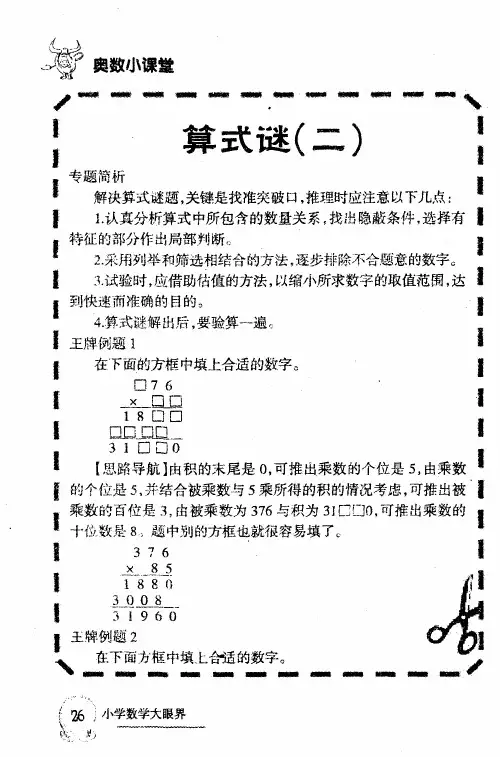 奥数小课堂
算式谜(二)
专题简析
解决算式谜题,关键是找准突破口,推理时应注意以下几点:
1.认真分析算式中所包含的数量关系,找出隐蔽条件,选择有
特征的部分作出局部判断。
2.采用列举和筛选相结合的方法,逐步排除不合题意的数字。
3.试验时,应借助估值的方法,以缩小所求数字的取值范围,达
到快速而准确的目的。
4.算式谜解出后,要验算一遍。
王牌例题1
在下面的方框中填上合适的数字。
□76
× □□
18□□
□□□□
31□□0
【思路导航】由积的末尾是0,可推出乘数的个位是5,由乘数
的个位是5,并结合被乘数与5乘所得的积的情况考虑,可推出被
乘数的百位是3,由被乘数为376与积为31□□0,可推出乘数的
十位数是8。题中别的方框也就很容易填了。
376
× 85
1880
3008
31960
王牌例题2
在下面方框中填上合适的数字。
26 小学数学大眼界